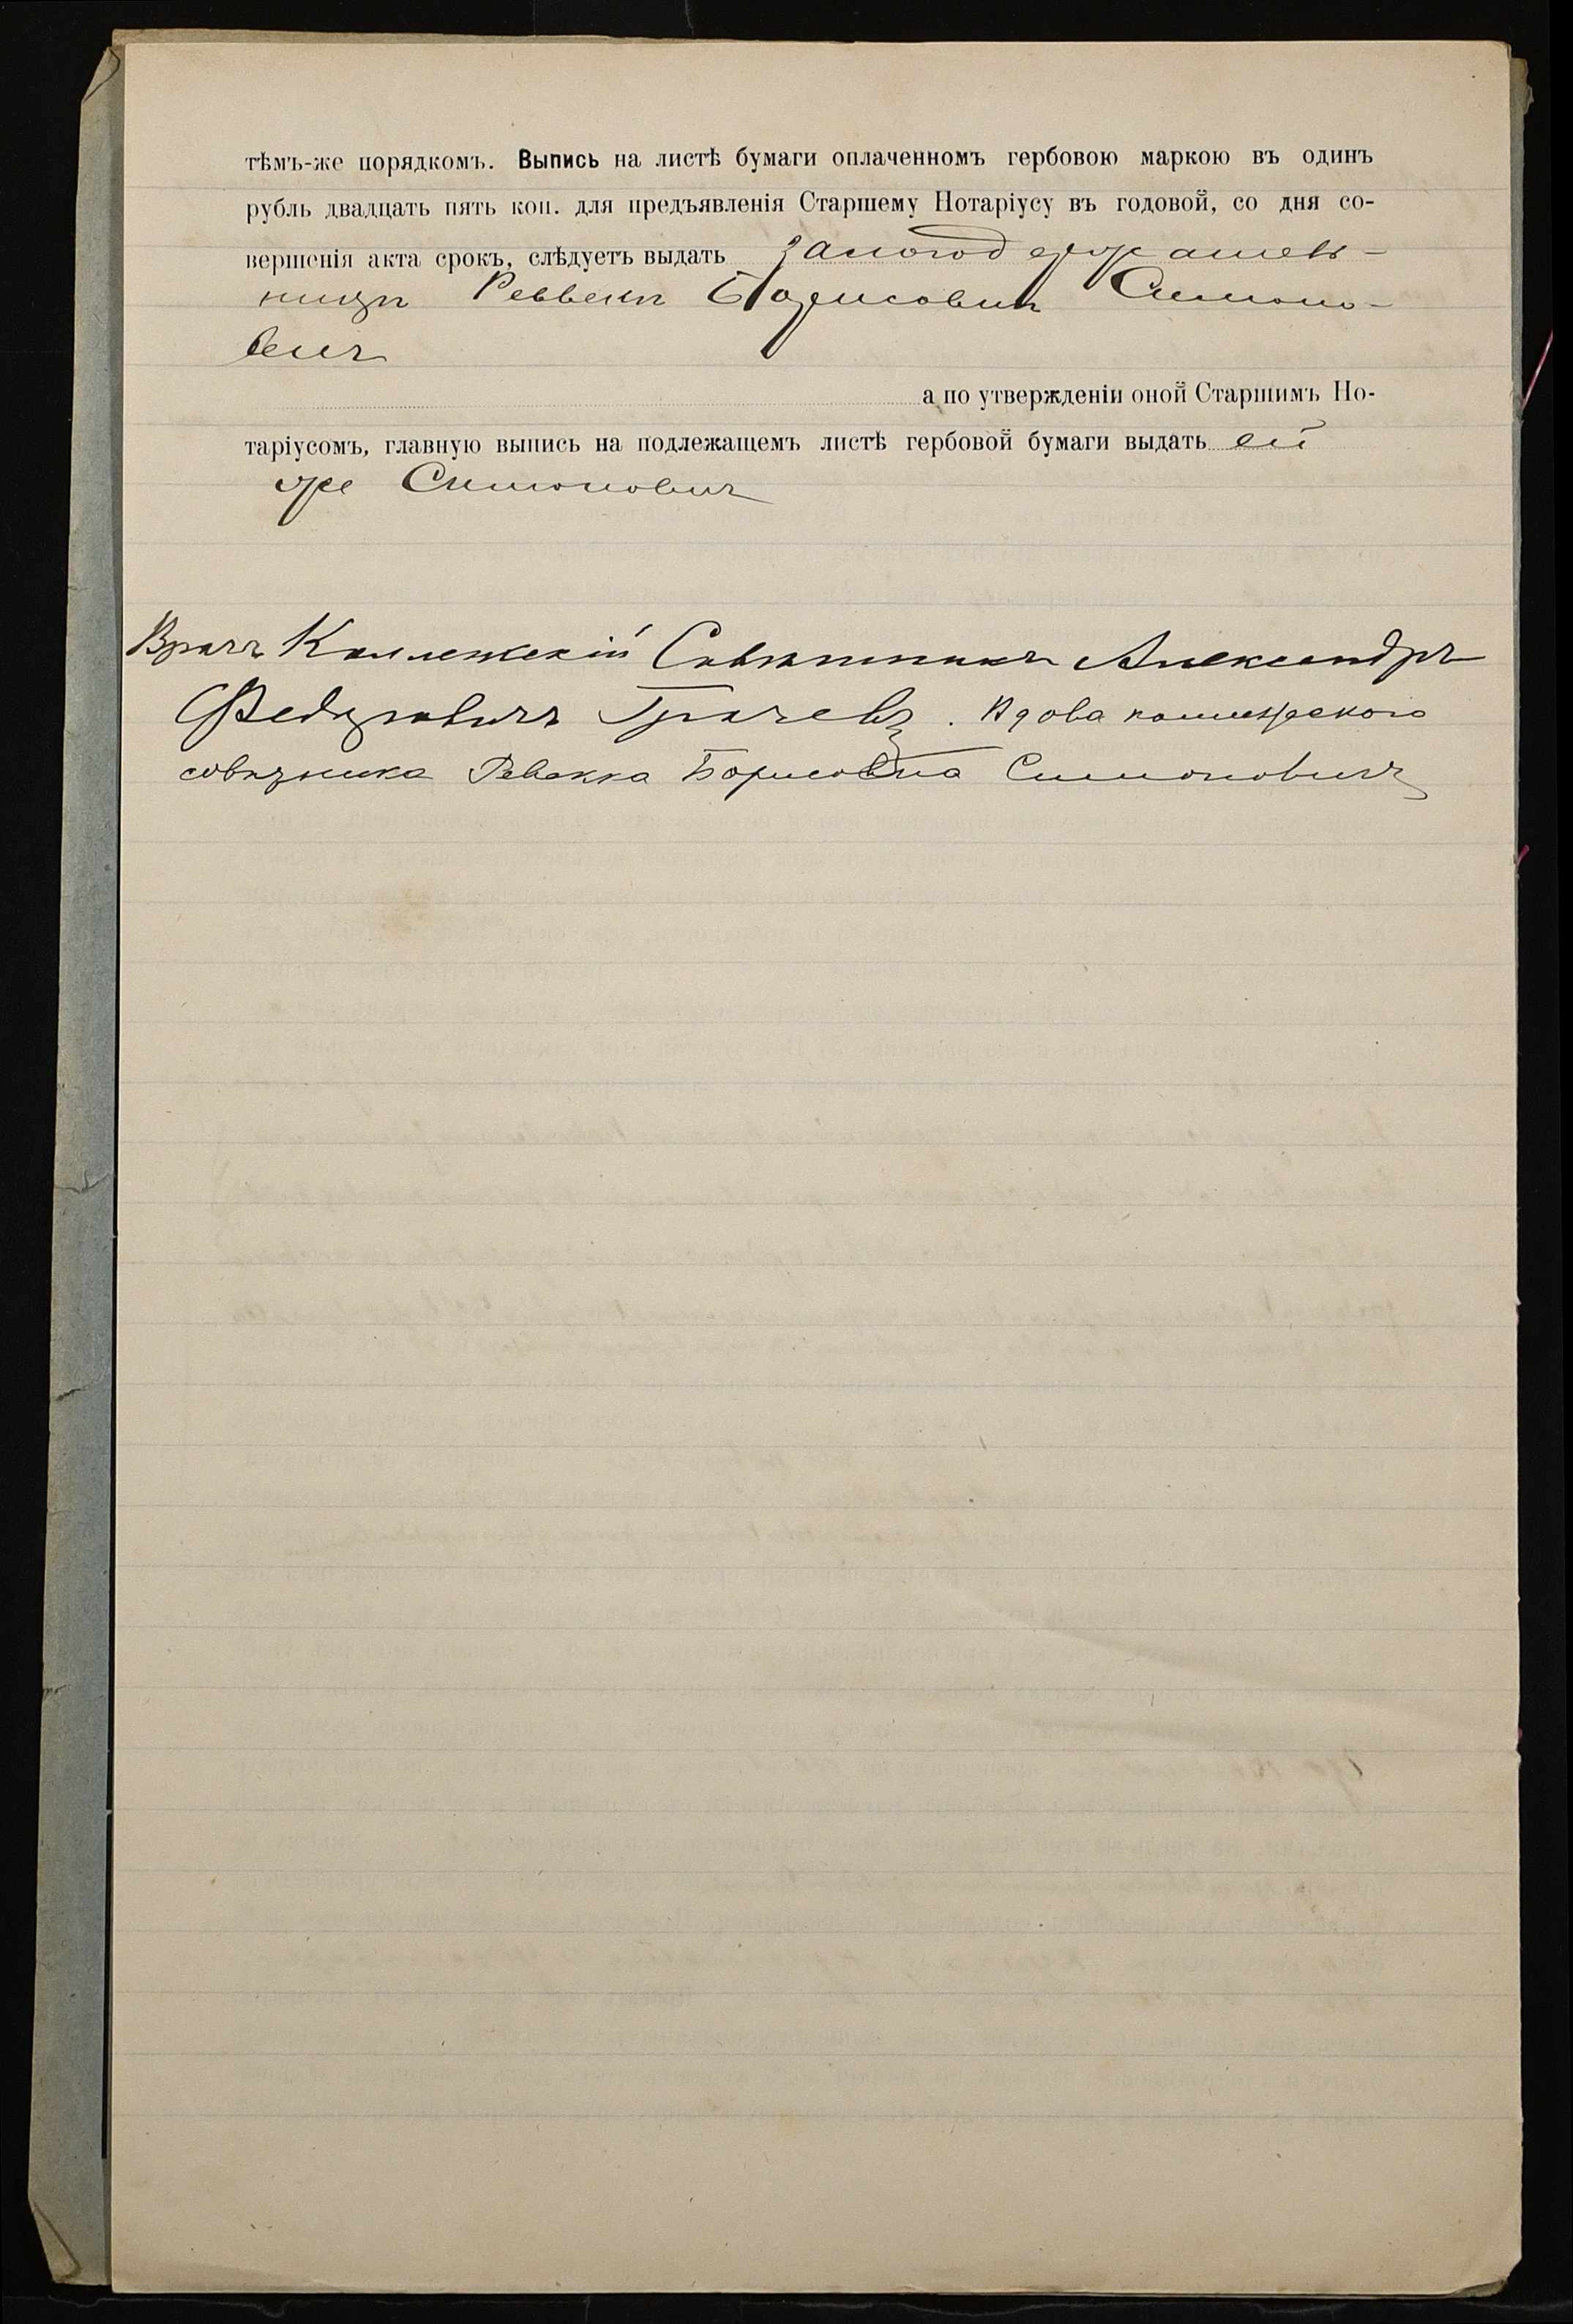 тѣмъ-же порядкомъ. Выпись на листѣ бумаги оплаченномъ гербовою маркою въ одинъ
рубль двадцать пять коп. для предъявленія Старшему Нотаріусу въ годовой, со дня со-
вершенія акта срокъ, слѣдуетъ выдать залогодержатель-
ницѣ Реввекѣ Борисовнѣ Симоно-
вичъ
а по утвержденіи оной Старшимъ Но-
таріусомъ, главную выпись на подлежащемъ листѣ гербовой бумаги выдать ей
же Симоновичъ
Врачъ Коллежскій Совѣтникъ Александръ
Федоровичъ Грачевъ. Вдова коллежскаго
совѣтника Ревекка Борисовна Симоновичъ